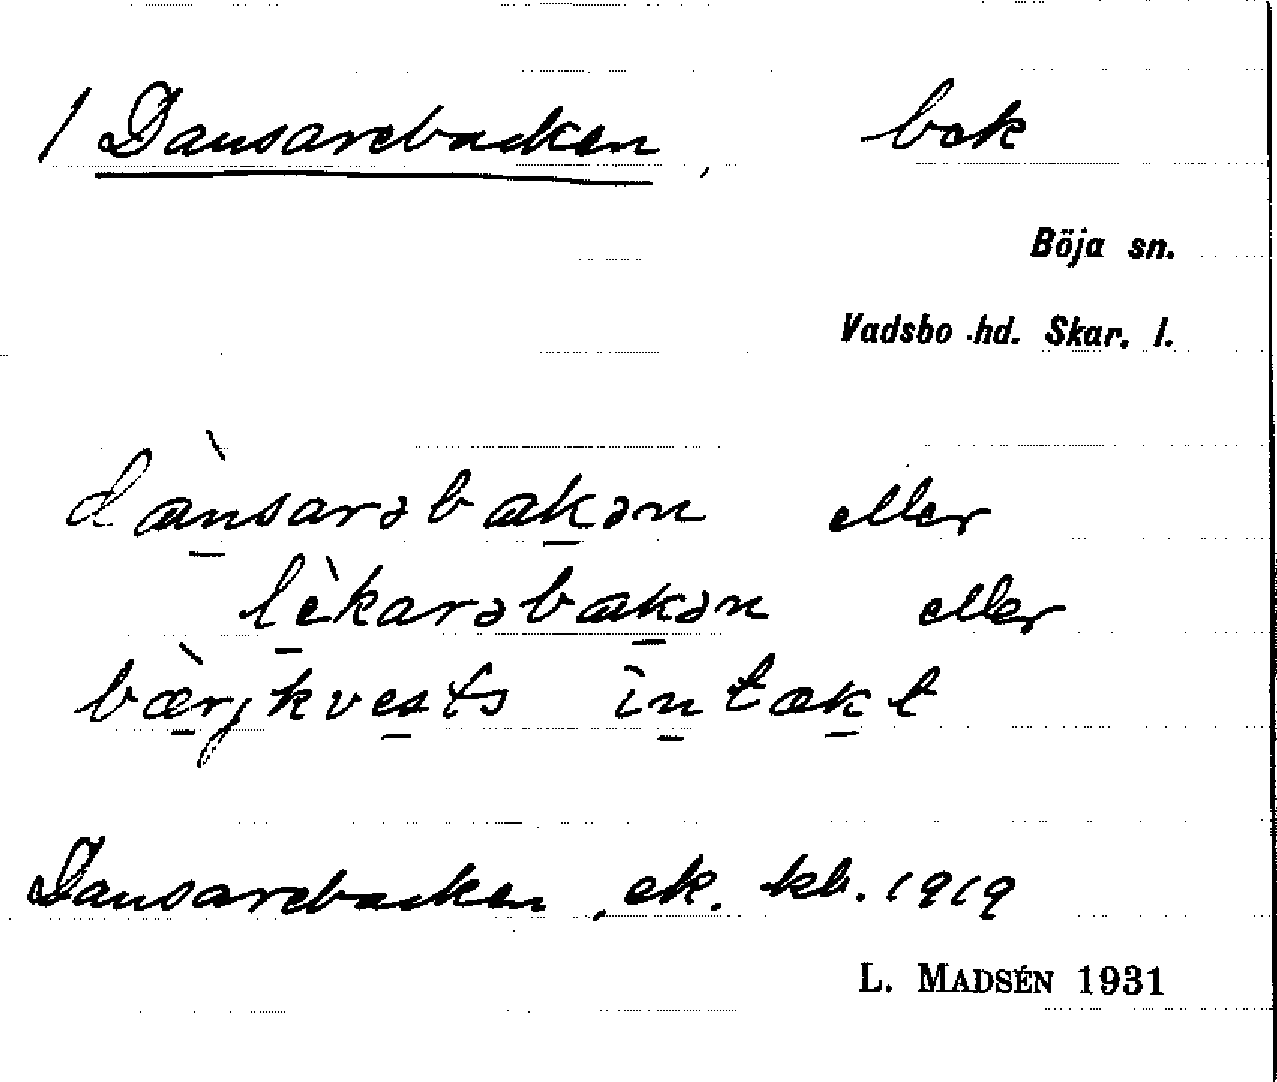 / Dansarebacken, bok
Böja sn.
Vadsbo hd. Skar. l.
dànsarəbakən eller
lèkarəbakən eller
bærjkvests ìntækt
Dansarebacken, ek. kb. 1919
L. MADSÉN 1931